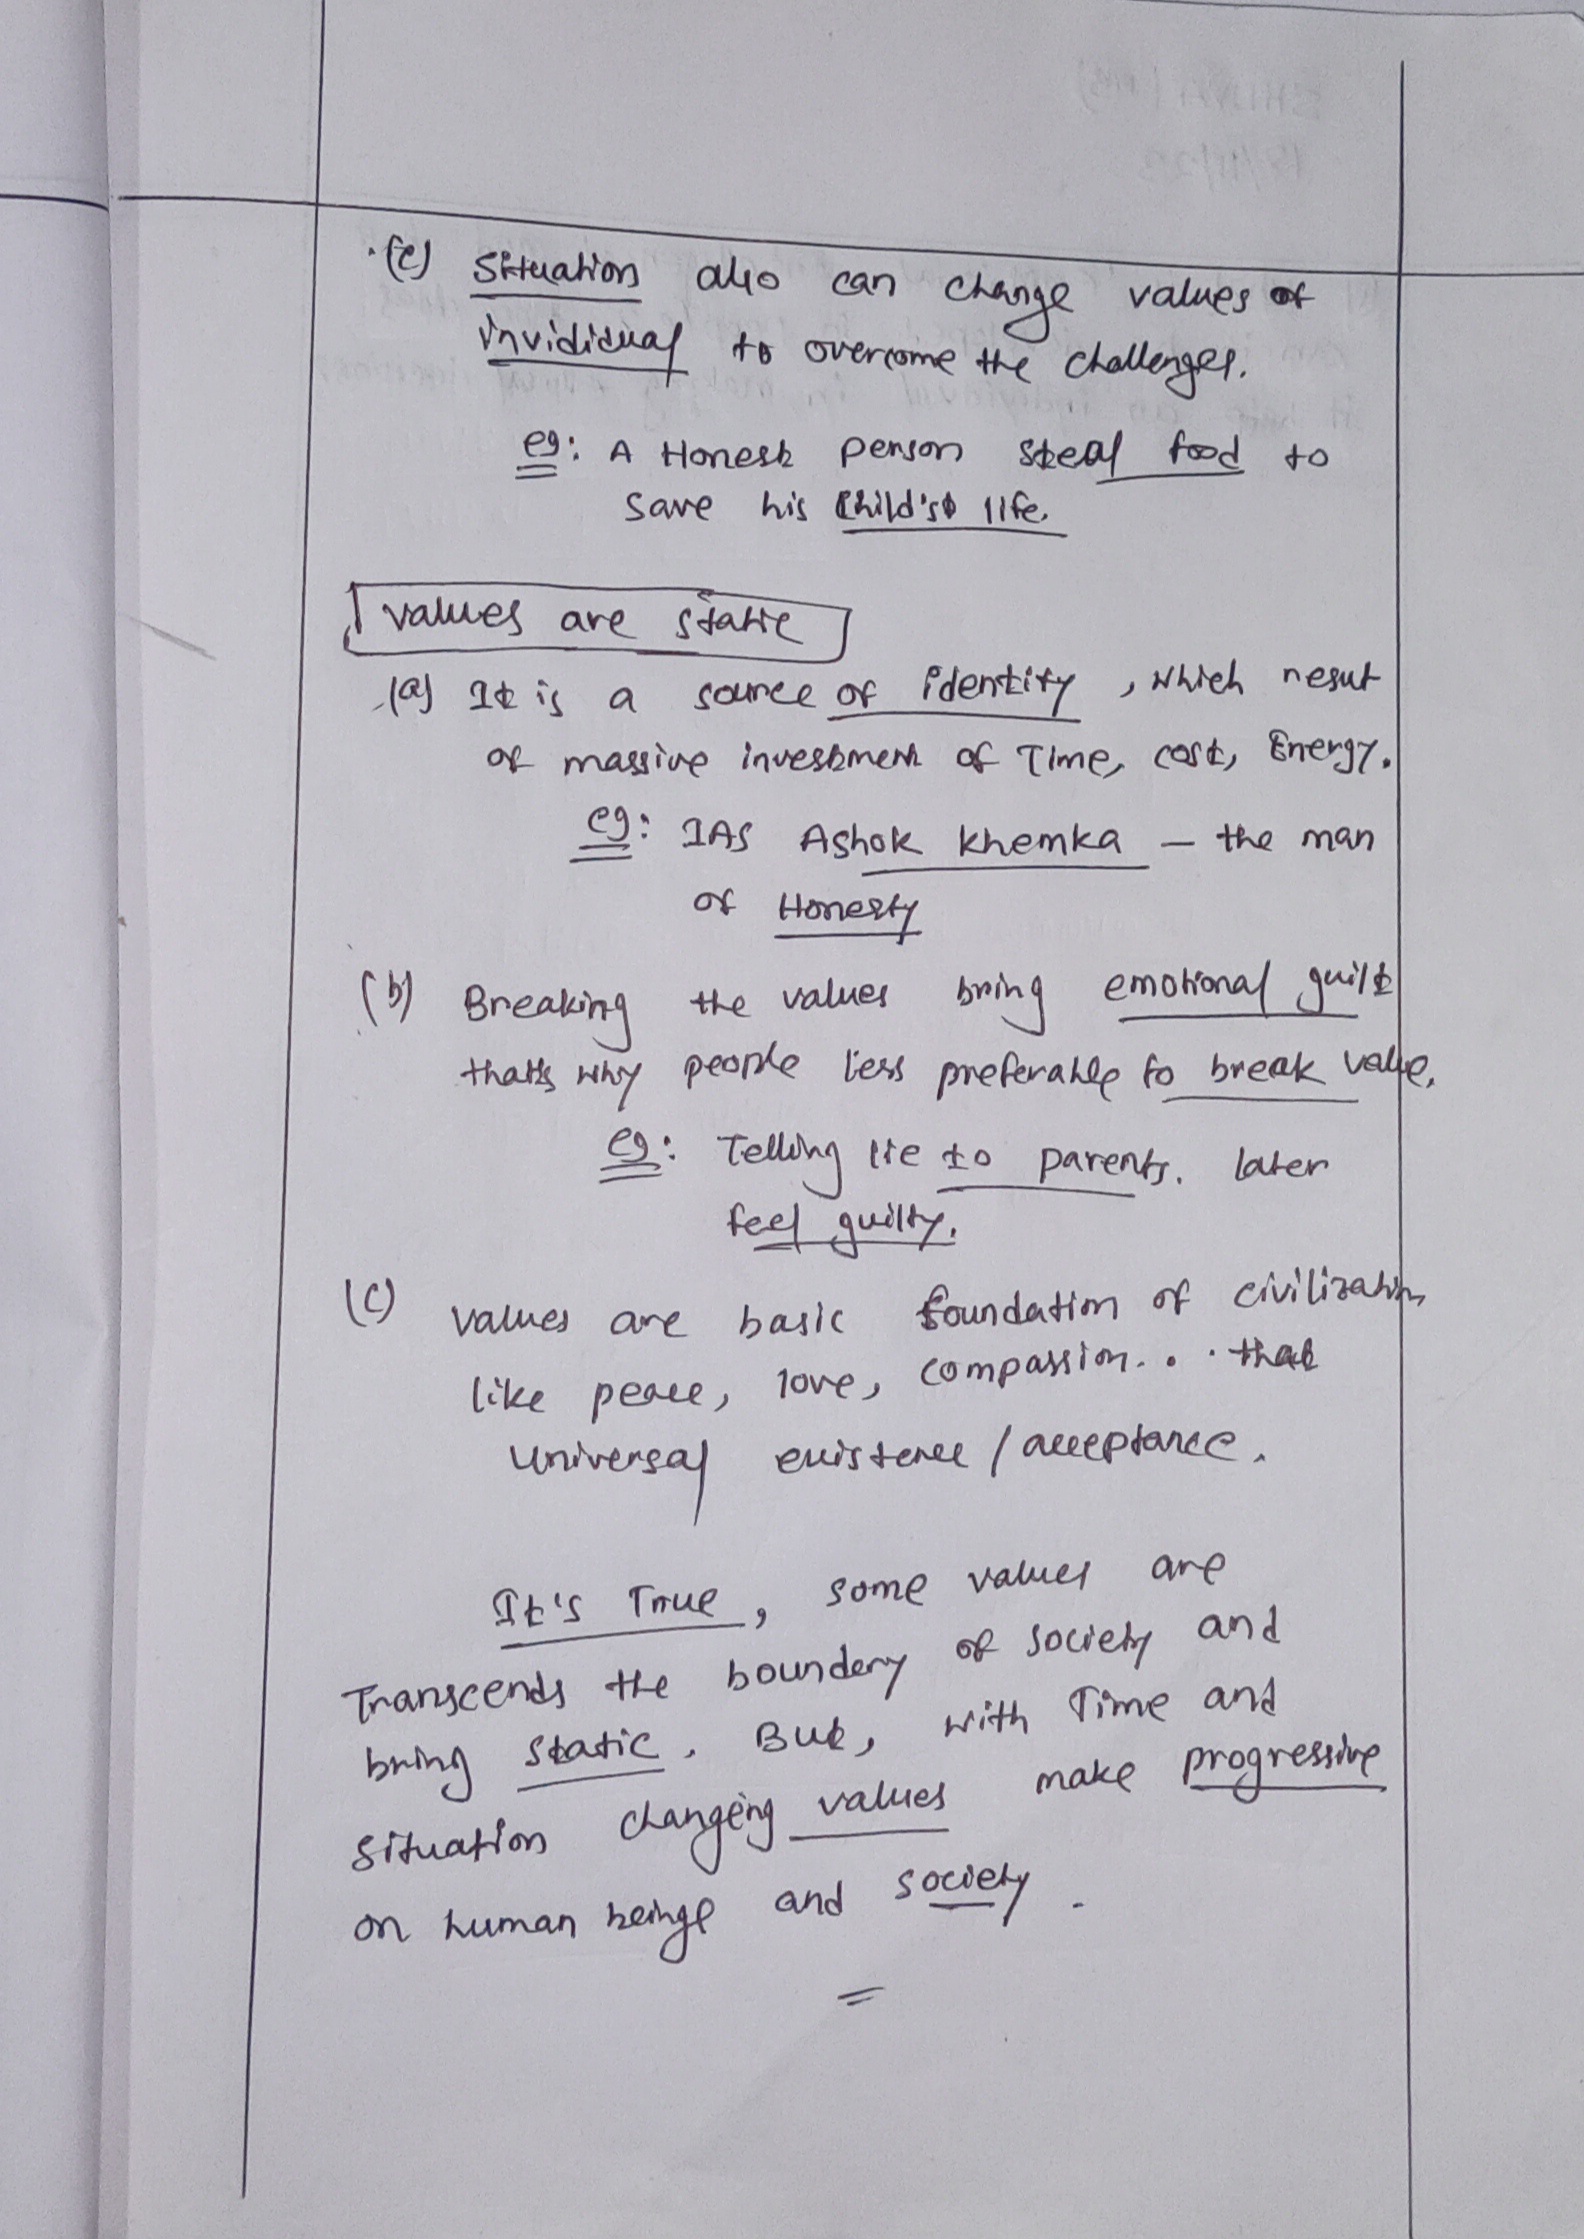 (e) Situation also can change values of
invididual to overcome the challenges.
eg: A Honest person steal food to
save his child's life.
values are static
(a) It is a source of identity, which resut
of massive investment of Time, cost, Energy.
eg: IAS Ashok Khemka – the man
of Honesty
(b) Breaking the values bring emotional guilt
that's why people less preferable to break value.
eg: Telling lie to parents. later
feel guilty.
(c) values are basic foundation of civilization
like peace, love, compassion... that
universal existence / acceptance.
It's True, some values are
Transcends the boundery of society and
bring static. But, with Time and
situation changeing values make progressive
on human beings and society.